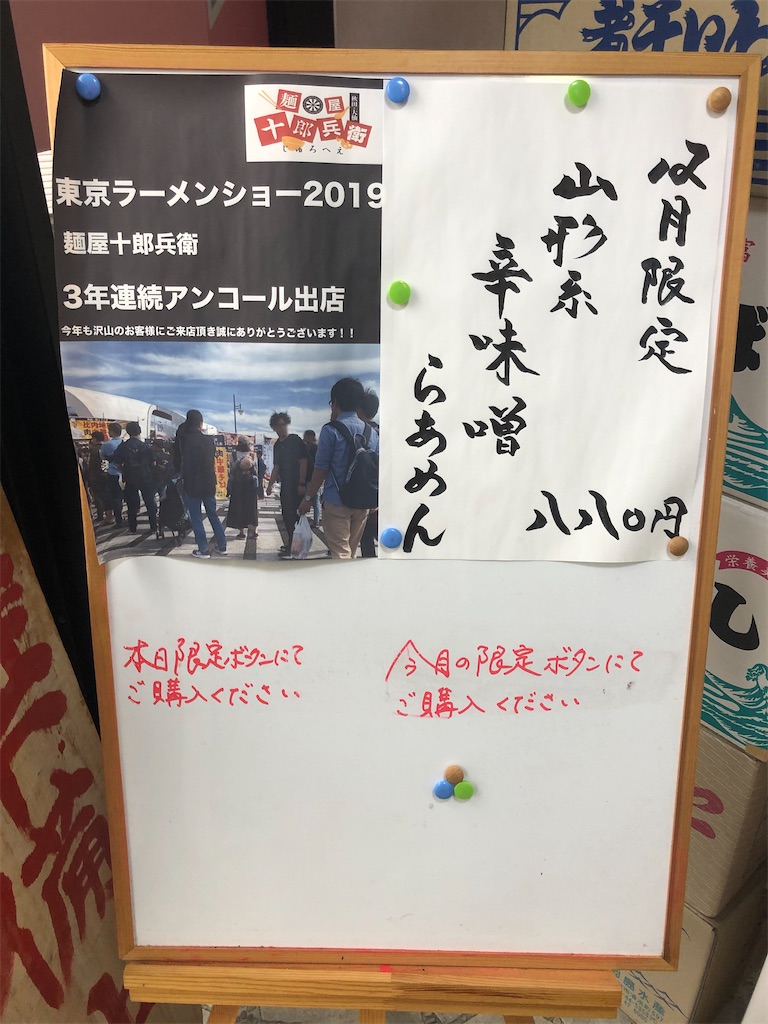 麺屋
秋田・大仙
十郎兵衛
じゅうろべえ
東京ラーメンショー2019
麺屋十郎兵衛
3年連続アンコール出店
今年も沢山のお客様にご来店頂き誠にありがとうございます！！
12月限定
山形系
辛味噌
らあめん
八八〇円
本日限定ボタンにて
ご購入ください
今月の限定ボタンにて
ご購入ください
煮干いわ